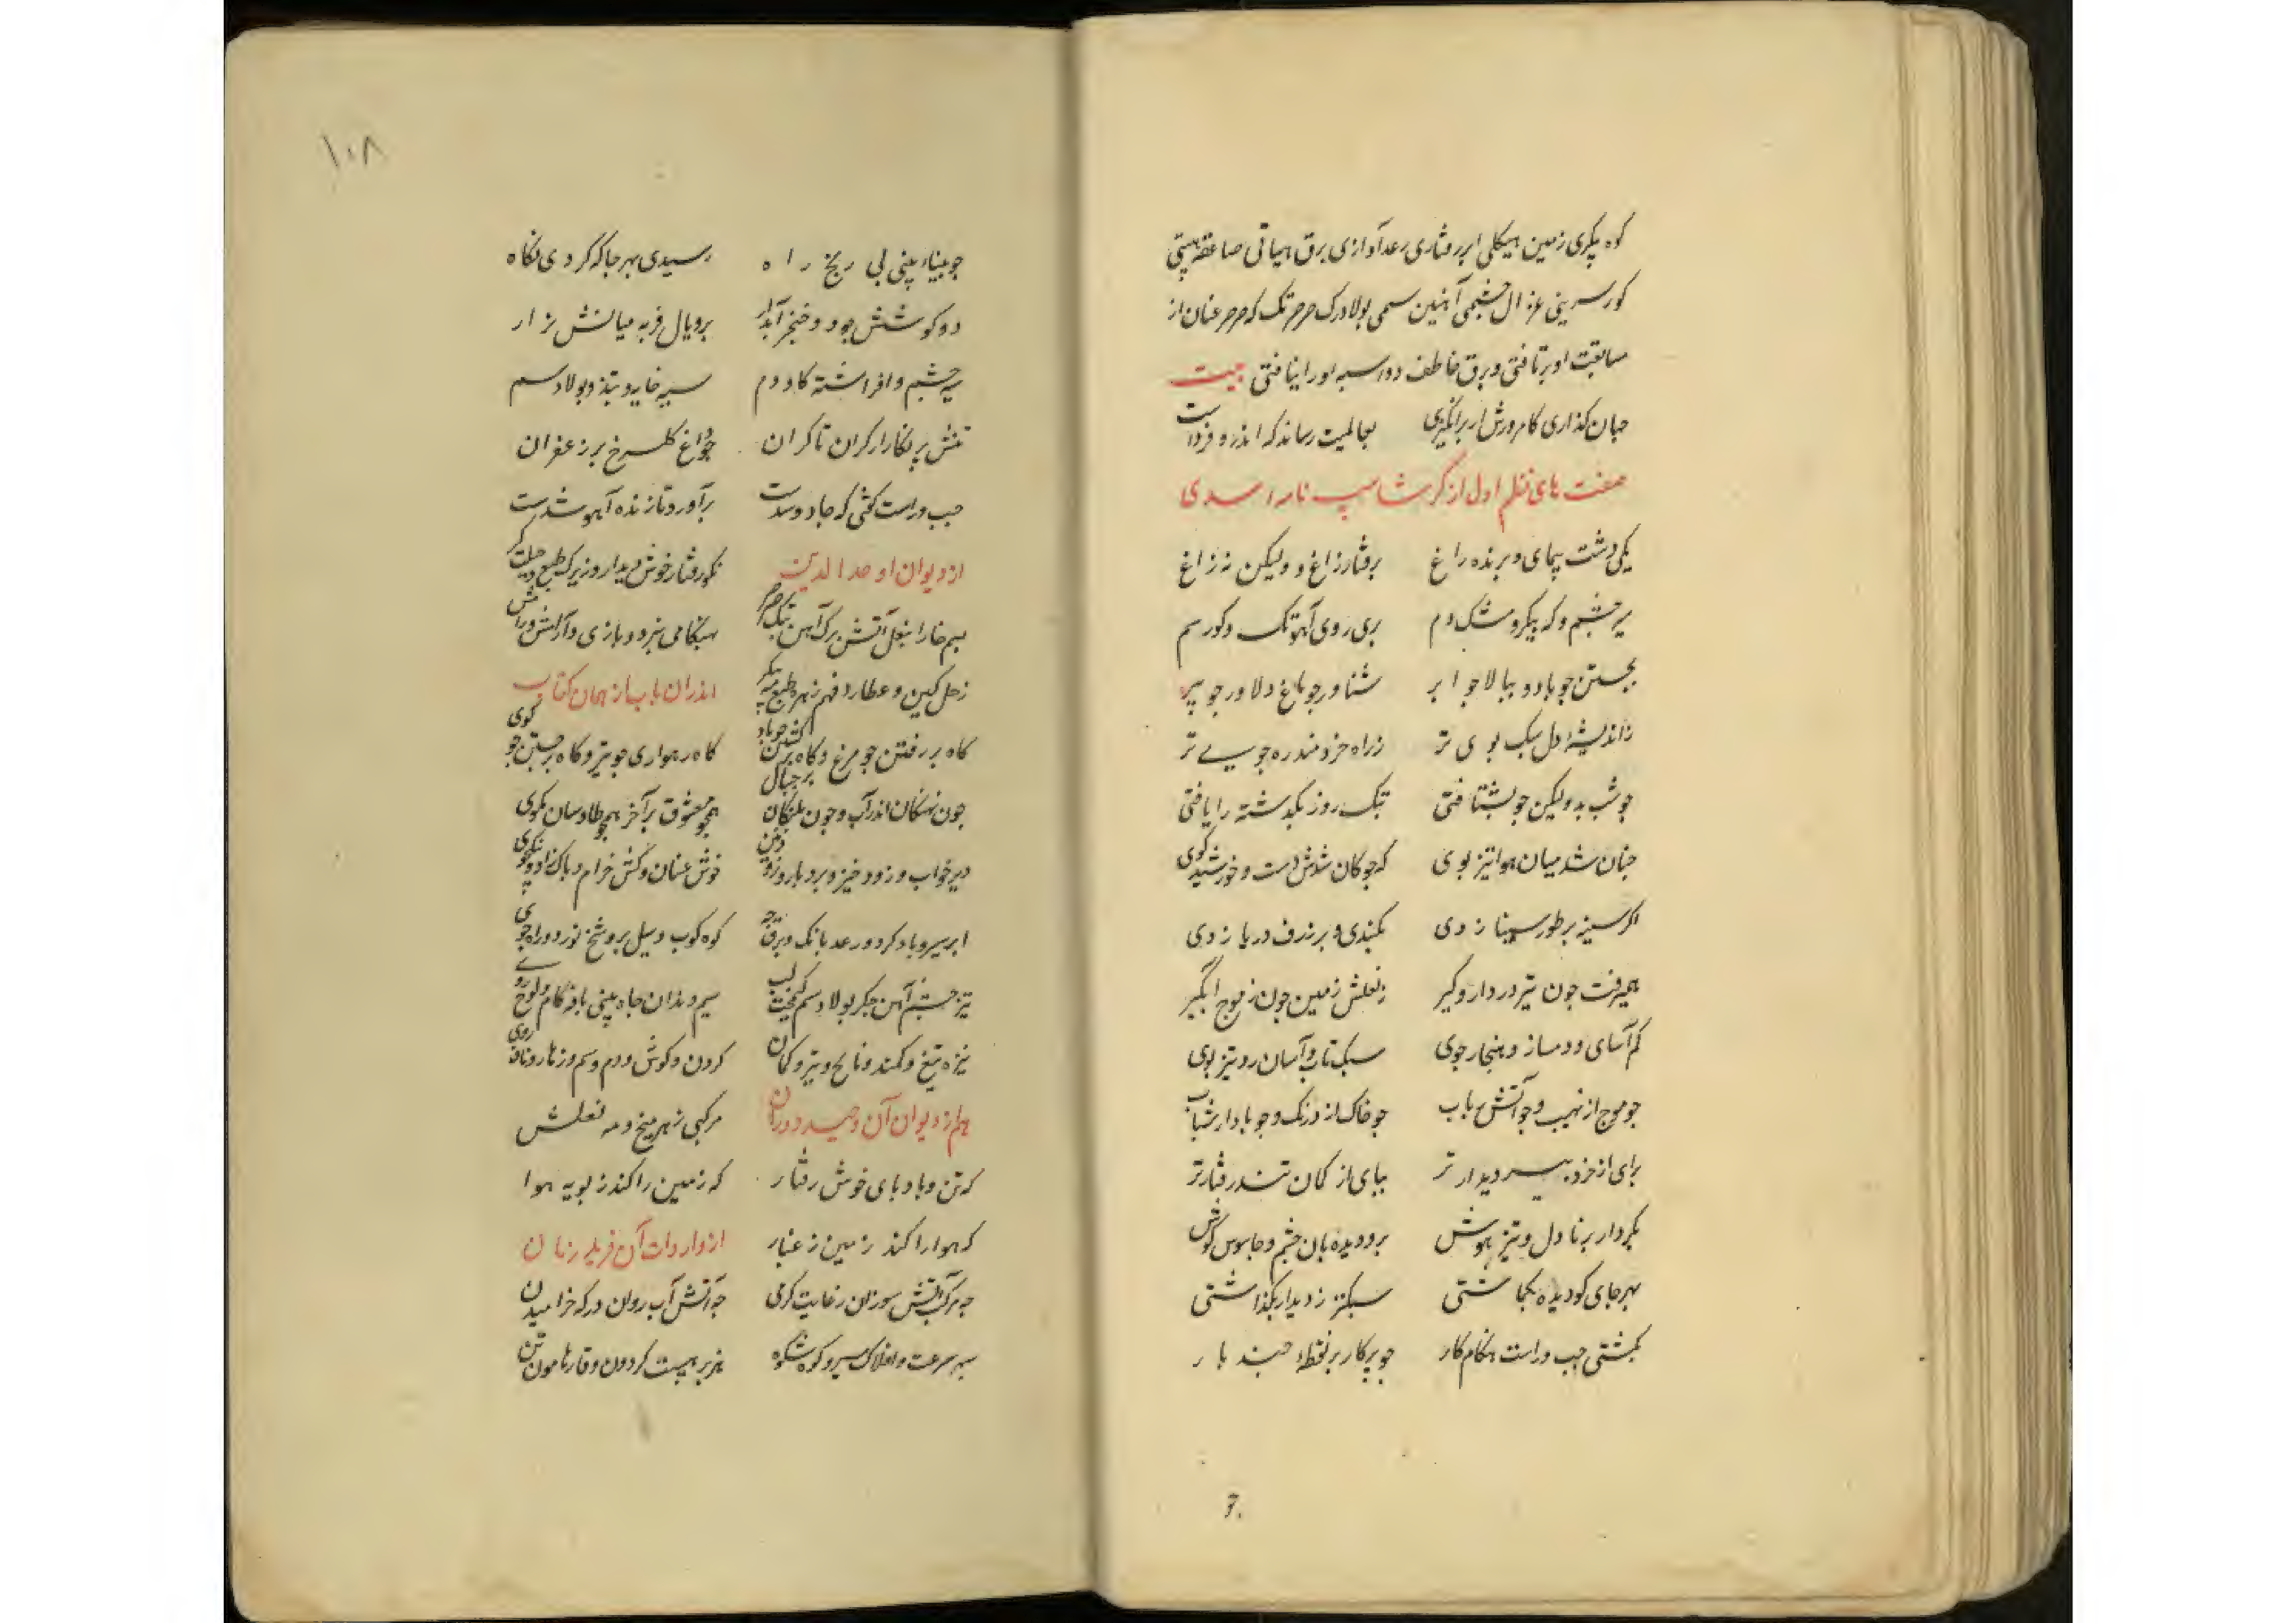 کوه پیکری زمین هیکلی ابر رفتاری رعد آوازی برق هیأتی صاعقه هیبتی
کور سرینی غزال چشمی آهنین سمی بولادرک صرصر تک که صرصر عنان از
مسابقت او برتافتی و برق خاطف دو اسبه او را نیافتی بیت
جهان کذاری کامروزش ار برانگیزی بعالمیت رساند که اندرو فرداست
صفت های نظم اول از کرشاسپ نامه اسدی
یکی دشت پیمای و برنده راغ برفتار زاغ و ولیکن نه زاغ
سیه چشم و که پیکر و مشک دم پری روی آهو تک و کور سم
بجستن جو باد و ببالا جو ابر شناور جو ماغ و دلاور جو ببر
ز اندیشهٔ دل سبک بوی تر ز راه خردمند ره جوی تر
جو شب بد ولیکن جو بشتافتی بتک روز بکدشته را یافتی
جنان شد میان هوا تیز بوی که جوکان شدش دست و خورشید کوی
اکر سینه بر طور سینا زدی بکندی و بر ژرف دریا زدی
همیرفت جون تیر در دار و کیر ز نعلش زمین جون ز موج آبگیر
کم آسای و دمساز و هنجار جوی سبک تاب و آسان رو و تیز بوی
جو موج از نهیب و جو آتش باب جو خاک از درنک و جو باد از شتاب
برای از خرد بیش دیدار تر ببای از کمان تند رفتار تر
بکردار برنا دل و تیز هوش برو دیده بان چشم و جاسوس کوش
بهر جای کو دیده بکماشتی سبکتر ز دیدار بکذاشتی
بکشتی جب و راست هنکام کار جو برکار بر نقطهٔ جند بار
۱۰۸
جو بیناء بینی بی رنج راه رسیدی بهر جا که کردی نکاه
دو کوشش جو دو خنجر آبدار برو یال فربه میانش نزار
سیه چشم و افراشته کاودم سیه خایه و تند و بولاد سم
تنش بر نکار از کران تا کران جو داغ کل سرخ بر زعفران
جب و راست کفتی که جادو شدست برآورد تازنده آهو شدست
از دیوان اوحد الدین نکو رفتار خوش دیدار و زیرک طبع
بسم خارا بنعل آتش برک آهن بتک صرصر بهنکامی نبرد و بازی و آرامش و رامش
زحل کین و عطارد فهم زهره طبع مه پیکر اندران باب از همان کتاب
کاه بر رفتن جو مرغ و کاه برکشتن جو باد کاه رهواری جو تیر و کاه برجستن جو کوی
جون نهنکان اندر آب و جون بلنکان بر جبال همجو معشوق بر آخر همجو طاوسان بکوی
دیر خواب و زود خیز و بردبار و زود خوش عنان و کش خرام و باک زاد و نیکخوی
ابر سیر و باد کرد و رعد بانک و برق جه کوه کوب و سیل بر و شخ نورد و راه جوی
تیز چشم آهن جکر بولاد سم کیمخت لب سیم دندان جاه بینی ناوه کام و لوح روی
نیزه تیغ و کمند و ناجخ و تیر و کمان کردن و کوش و دم و سم و زهار و ران و روی
هم از دیوان آن وحید دوران مرکبی زهره میخ و مه نعلش
که تن و باد بای خوش رفتار که زمین را کند ز بویه هوا
که هوا را کند زمین ز غبار از واردات آن فرید زمان
جه مرکب آتش سوزان رعایت کرمی جه آتش آب روان در که خرامیدن
سپهر سرعت و افلاک سیر و کوه شکوه هزبر هیبت کردون وقار هامون تن